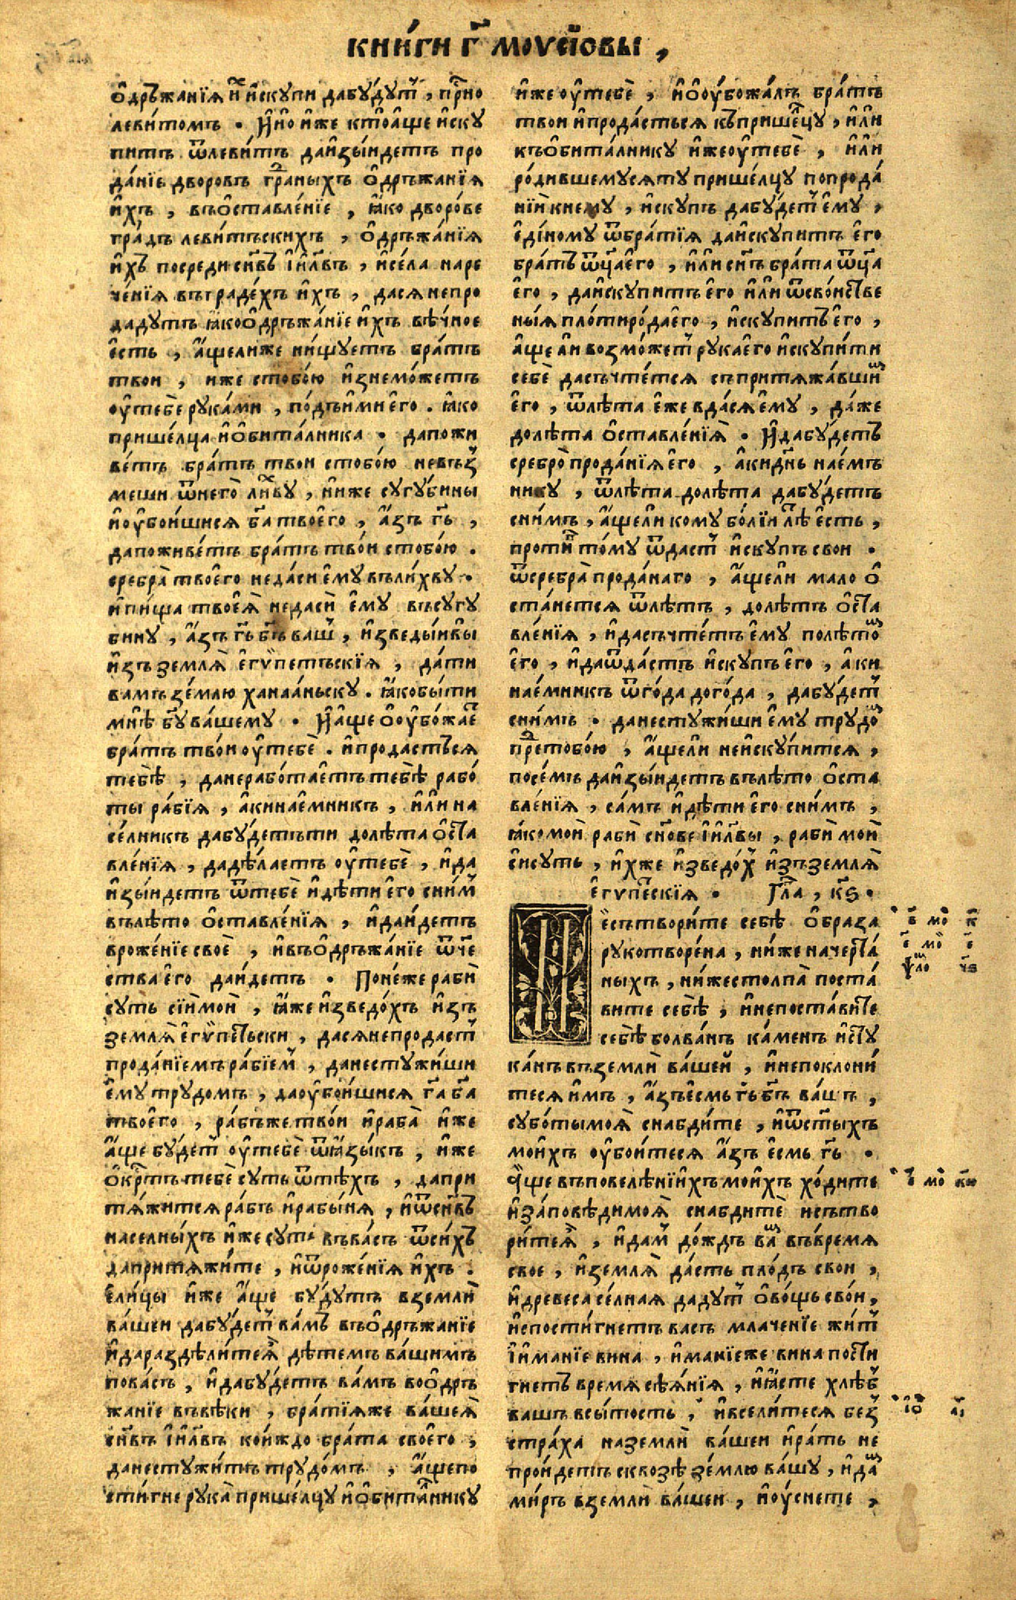 книги г҃ моѵсіовы ,
ѻдръжанїѧ и҆ и҆скупи дабудут , прїно
левитомъ . И҆но иже ктоаще иску
питъ ѿлевитъ даизыидетъ про
данїе дворовъ граныхъ ѻдръжанїѧ
ихъ , въѡставленїе , ꙗко дворове
градъ левитьскихъ , ѻдръжанїѧ
ихъ посреди сн҃въ і҆и҃лвъ , исела наре
ченїѧ въградехъ ихъ , дасѧнепро
дадутъ ꙗкоѻдръжанїе ихъ вѣчное
есть , ащелиже нищуетъ братъ
твои , иже стобою изнеможетъ
ѹтебе руками , подъимиего . ꙗко
пришелца иѻбиталника . дапожи
ветъ братъ твои стобою невъз
меши ѿнего лихву , ниже сугубины
иѹбоишисѧ б҃а твоего , азъ г҃ь ,
дапоживетъ братъ твои стобою .
сребра твоего недаси ему влихву .
ипища твоеѧ недаси ему въсугу
бину , азъ г҃ь б҃ъ ваш , изведыивы
изъ землѧ егѵпетьскїѧ , дати
вамъ землю ханааньску . ꙗкобыти
мнѣ б҃у вашему . И҆аще ѻѹбожае
братъ твои ѹтебе . ипродастьсѧ
тебѣ , данеработаетъ тебѣ рабо
ты рабїѧ , акинаемникъ , или на
селникъ дабудетъти долѣта ѻста
вленїѧ , дадѣлаетъ ѹтебе , ида
изыидетъ ѿтебе идѣти его сним
въ лѣто ѡставленїѧ , идаидетъ
врожение свое , ивъѻдръжанїе ѿче
ства его даидетъ . Понеже раби
суть сїи мои , ꙗже изведохъ изъ
землѧ егѵпетьски , дасѧнепродаст
проданїемъ рабїем , данестужиши
ему трудомъ , даѹбоишисѧ г҃а б҃а
твоего , рабъже твои ираба иже
аще будет ѹтебе ѿꙗзыкъ , иже
ѻкртъ тебе суть ѿтѣхъ , дапри
тѧжитсѧ рабъ ирабынѧ , иѿсн҃въ
населныхъ иже суть въвасъ ѿсихъ
дапритѧжите , иѿроженїѧ ихъ .
Елицы иже аще будутъ вземли
вашеи дабудет вамъ въѻдръжанїе
идараздѣлите дѣтемъ вашимъ
повасъ , идабудетъ вамъ воѻдръ
жанїе въвѣки , братїѧже вашеѧ
сн҃въ і҆и҃лвъ коиждо брата своего ,
данестужитъ трудомъ , ащепо
стигне рука пришелцу иѻбиталнику
иже ѹтебе , иѻѹбожалъ братъ
твои ипродастьсѧ къ пришелцу , или
къ ѻбиталнику иже ѹтебе , или
родившемусѧту пришелцу попрода
нїи кнему , искупъ дабудет ему ,
едіному ѿбратїѧ даискупитъ его
братъ ѿц҃а его , или сн҃ъ брата ѿц҃а
его , даискупитъ его или ѿсвоиств
ныѧ плотирода его , искупитъ его ,
аще ли возможет рука его искупити
себе дасъчтетсѧ съпритѧжавши
его , ѿлѣта еже вдасѧ ему , даже
долѣта ѻставленїѧ . И҆дабудетъ
сребро проданїѧ его , акиднь наемъ
нику , ѿлѣта долѣта дабудетъ
снимъ , ащели кому болїи лѣ есть ,
проти тому ѿдаст искупъ свои .
ѿсребра проданаго , ащели мало ѻ
станетсѧ ѿлѣтъ , долѣтъ ѻста
вленїѧ , идасъчтетъ ему полѣто
его , идаѿдастъ искупъ его , аки
наемникъ ѿгода догода , дабудет
снимъ . данестужиши ему трудо
претобою , ащели неискупитсѧ ,
посемъ даизыидетъ въ лѣто ѻста
вленїѧ , самъ идѣти его снимъ ,
ꙗкомои раби сн҃ове і҆и҃лвы , раби мои
сисуть , ихже изведох изъ землѧ
егѵпескїѧ . Гла , к҃ѕ .
Несътворите себѣ ѻбраза
рукотворена , ниже начерта
ныхъ , ниже столпа поста
вите себѣ , инепоставите
себѣ болванъ каменъ исту
канъ въ земли вашеи , инепоклони
тесѧ имъ , азъ есмь г҃ь б҃ъ вашъ ,
суботы моѧ снабдите , иѿстыхъ
моихъ ѹбоитесѧ азъ есмь г҃ь .
Аще въповелѣнїихъ моихъ ходите
изаповѣди моѧ снабдите исътво
рите , идам дождь ва въвремѧ
свое , иземлѧ дасть плодъ свои ,
идревеса селнаѧ дадут ѻвощь свои ,
ипостигнетъ васъ млаченїе жит
їиманїе вина , иманїеже вина пости
гнетъ времѧ сѣѧнїѧ , иꙗсте хлѣб
вашъ всытость , ивселитесѧ без
страха наземли вашеи ирать не
проидетъ сквозѣ землю вашу , ида
миръ вземли вашеи , иѹснете ,